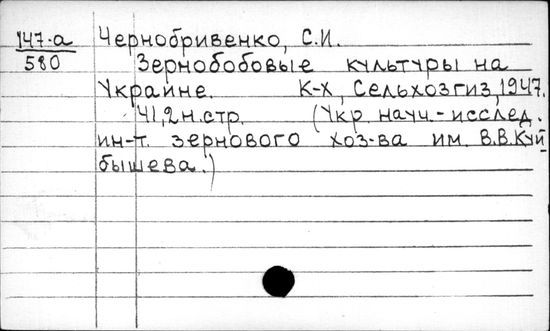 147-а Чернобривенко, С.И.
580 Зернобобовые культуры на
Украине. К-Х, Сельхозгиз, 1947.
41,2 н.стр. (Укр. науч.-исслед.
ин-т. зернового хоз-ва им. В.В.Куй
бышева.)